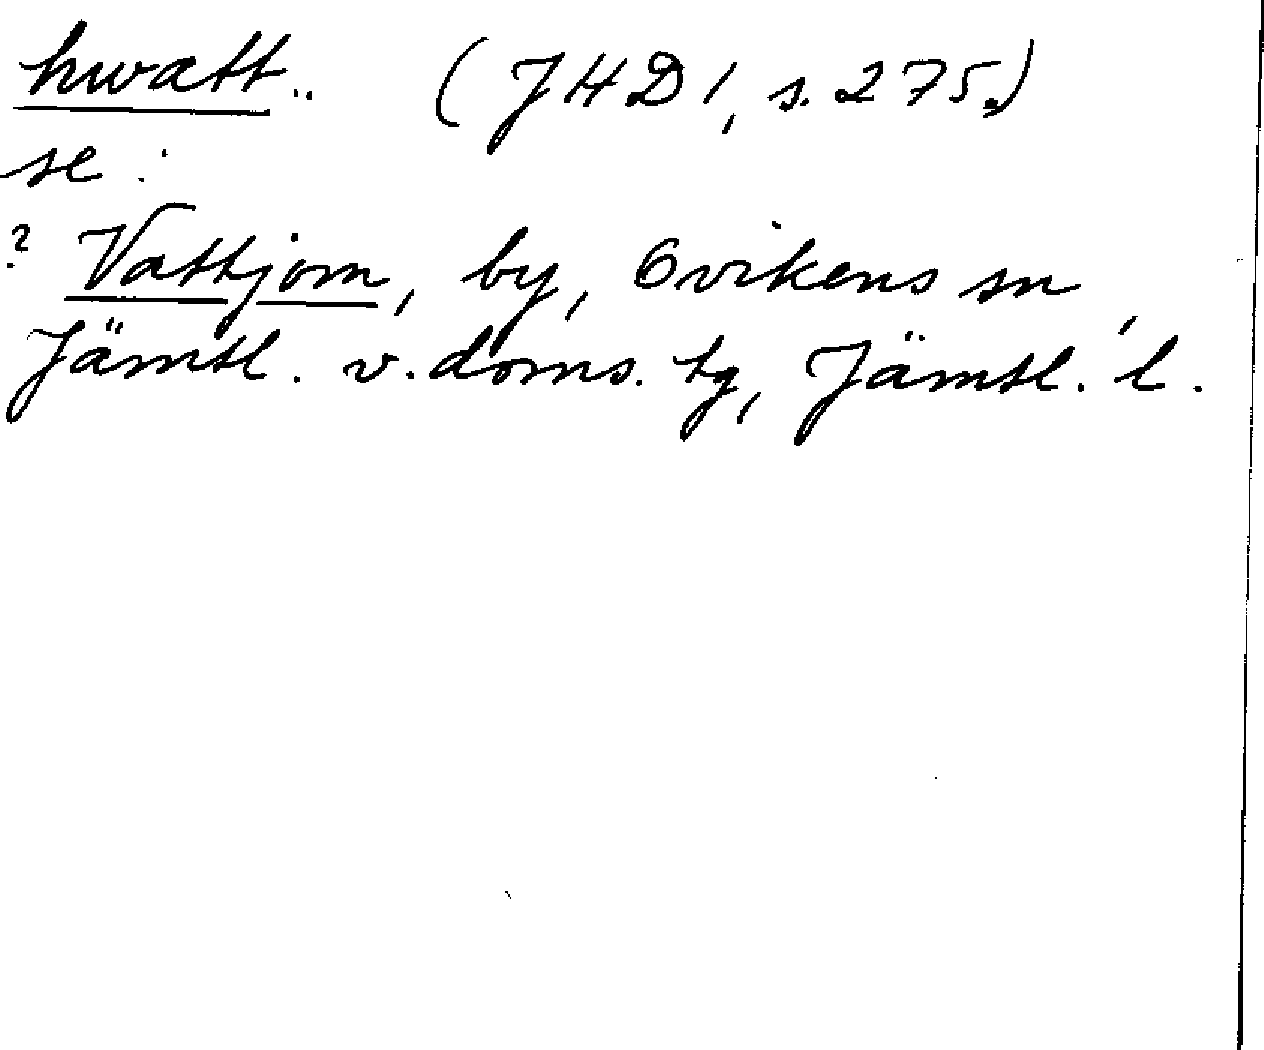 hwatt.. (JHD 1, s. 275.)
se :
? Vattjom, by, Ovikens sn,
Jämtl. v. doms. tg, Jämtl. l.